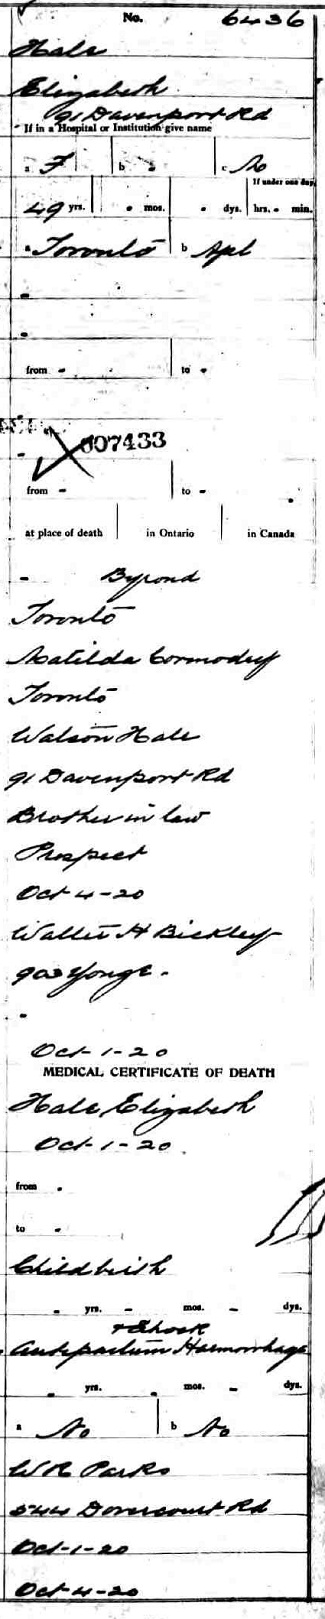 No. 6436
Hale
Elizabeth
91 Davenport Rd
If in a Hospital or Institution give name
a F b c M
If under one day,
49 yrs. mos. dys. hrs. min.
a Toronto b Apl
from - to -
007433
from - to -
at place of death in Ontario in Canada
- Byrond
Toronto
Matilda Cormodey
Toronto
Watson Hale
91 Davenport Rd
Brother in law
Prospect
Oct 4-20
Walter H Bickley
Yonge.
Oct-1-20
MEDICAL CERTIFICATE OF DEATH
Hale Elizabeth
Oct-1-20
from -
to -
Childbirth
- yrs. - mos. - dys.
+ Shock
Antepartum Haemorrhage
- yrs. - mos. - dys.
a No b No
W R Parks
544 Dovercourt Rd
Oct-1-20
Oct-4-20